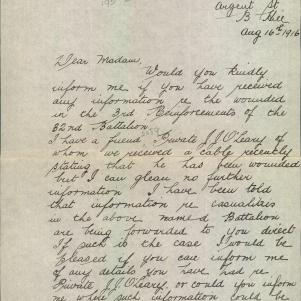 Argent St
B Hill
Aug 16th 1916
Dear Madam,
Would you kindly
inform me if you have received
any information re the wounded
in the 3rd Reinforcements of the
32nd Battalion.
I have a friend Private J J O'Leary of
whom we received a cable recently
stating that he has been wounded
but I can glean no further
information I have been told
that information re casualties
in the above name-d Battalion
are being forwarded to you direct
If such is the case I would be
pleased if you can inform me
of any details you have had re
Private J J O'Leary, or could you inform
me where such information could be